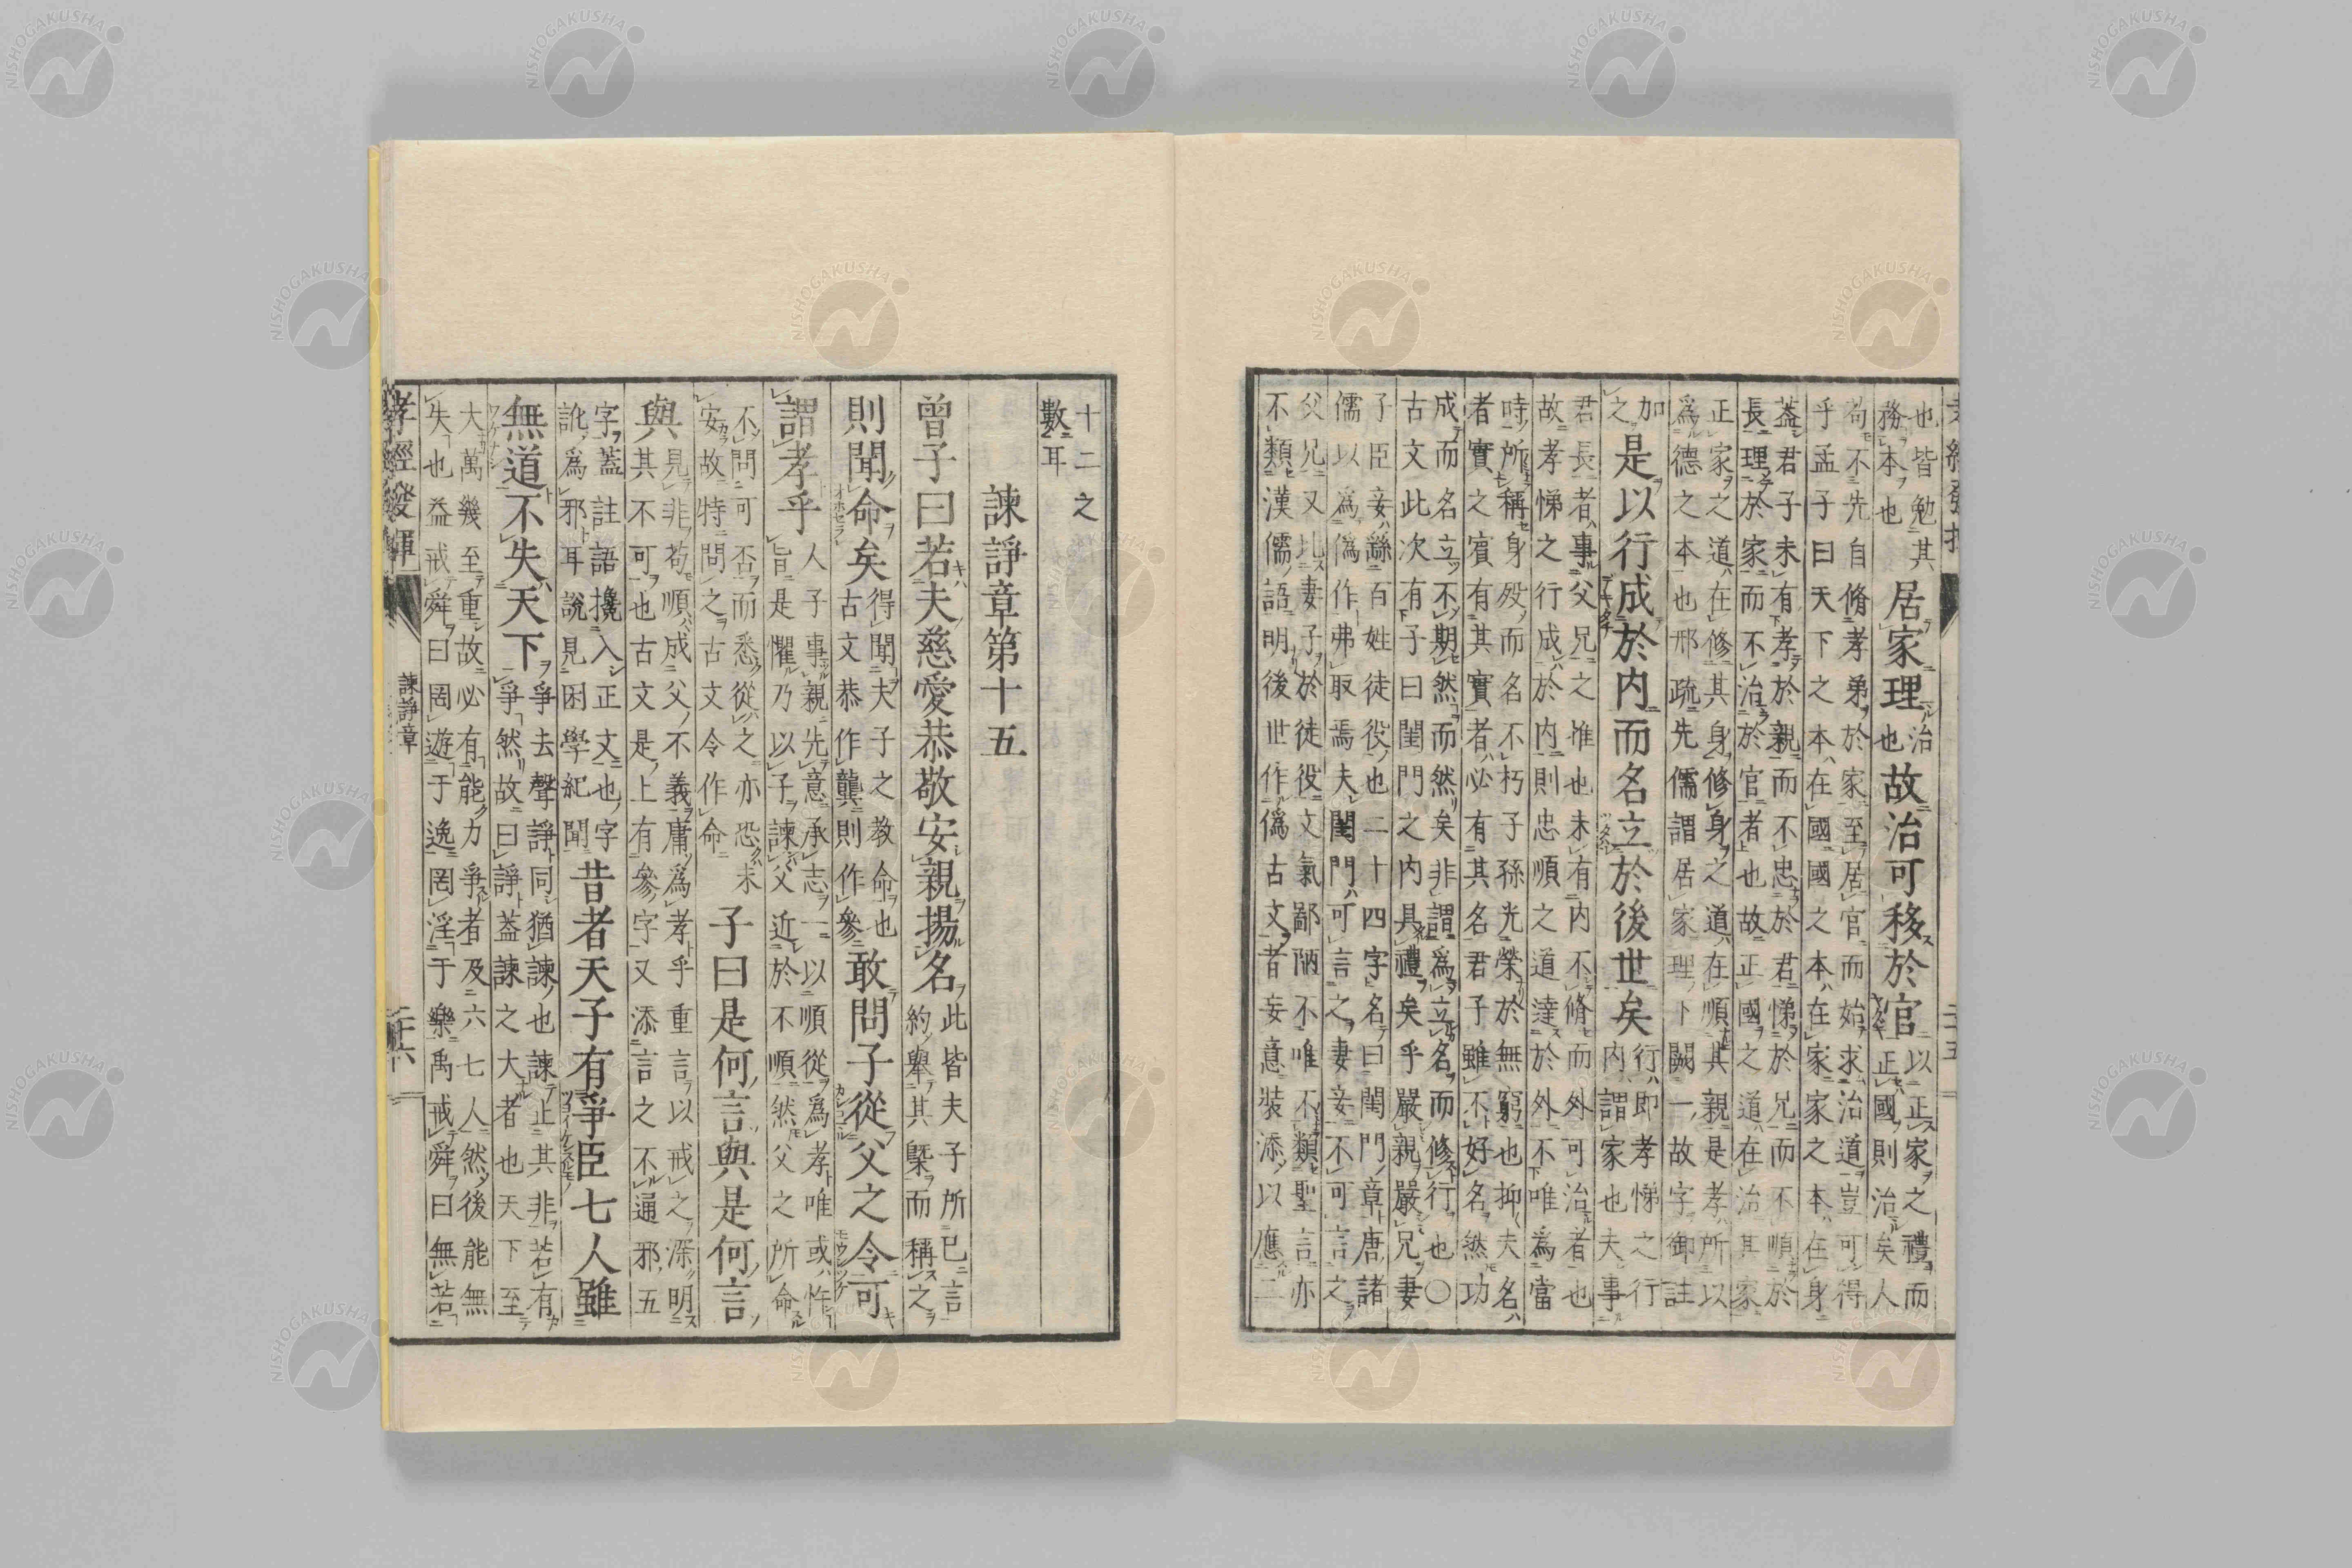 也皆勉其
務本也
居家理
治
也
故治可移於官
以正家之禮而
正國則治矣人
苟不先自脩孝弟於家至居官而始求治道豈可得
乎孟子曰天下之本在國國之本在家家之本在身
蓋君子未有孝於親而不忠於君悌於兄而不順於
長理於家而不治於官者也故正國之道在治其家
正家之道在修其身修身之道在順其親是孝所以
爲德之本也邢疏先儒謂居家理下闕一故字御註
加
之
是以行成於内而名立於後世矣
行即孝悌之行
内謂家也夫事
君長者事父兄之惟也未有内不脩而外可治者也
故孝悌之行成於内則忠順之道達於外不唯爲當
時所稱身殁而名不朽子孫光榮於無窮也抑夫名
者實之賓有其實者必有其名君子雖不好名然功
成而名立不期然而然矣非謂爲立名而修行也○
古文此次有子曰閨門之内具禮矣乎嚴親嚴兄妻
子臣妾繇百姓徒役也二十四字名曰閨門章唐諸
儒以爲僞作弗取焉夫閨門可言之妻妾不可言之
父兄又比妻子於徒役文氣鄙陋不唯不類聖言亦
不類漢儒語明後世作僞古文者妄意裝添以應二
二十五
十二之
數耳
諫諍章第十五
曾子曰若夫慈愛恭敬安親揚名
此皆夫子所已言
約舉其槩而稱之
則聞命矣
得聞夫子之教命也
古文恭作龔則作參
敢問子從父之令可
謂孝乎
人子事親先意承志一以順從爲孝唯或怍
旨是懼乃以子諫父近於不順然父之所命
不問可否而悉從之亦恐未
安故特問之古文令作命
子曰是何言與是何言
與
見非苟順成父不義庸爲孝乎重言以戒之深明
其不可也古文是上有參字又添言之不通邪五
字蓋註語攙入正文也字
訛爲邪耳說見困學紀聞
昔者天子有爭臣七人雖
無道不失天下
爭去聲諍同猶諫也諫止其非若有
爭然故曰諍蓋諫之大者也天下至
大萬幾至重故必有能力爭者及六七人然後能無
失也益戒舜曰罔遊于逸罔淫于樂禹戒舜曰無若
孝經發揮
諫諍章
二十六